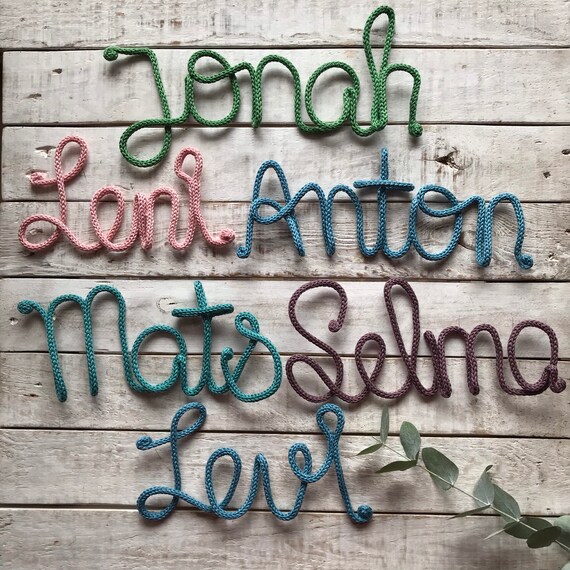 Jonah
Leni Anton
Mats Selma
Levi